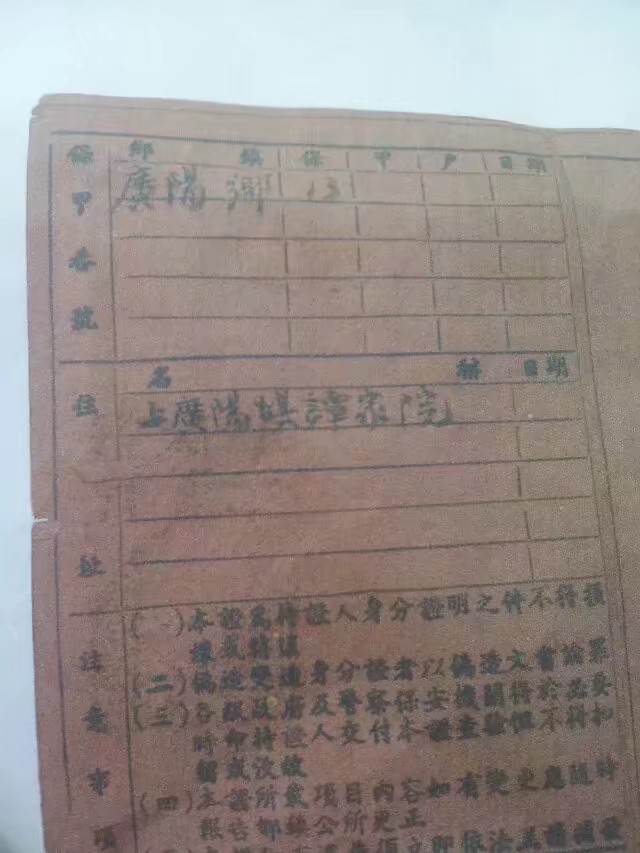 保甲番號
鄉 鎮 保 甲 戶 日期
廣陽鄉 13
住址
名 稱 日期
上廣陽壩譚家院
注意事項
(一)本證為持證人身分證明之件不得損
壞或轉借
(二)偽造變造身分證者以偽造文書論罪
(三)各級政府及警察保安機關得於必要
時命持證人交付本證查驗但不得扣
留或沒收
(四)本證所載項目內容如有變更應隨時
報告鄉鎮公所更正